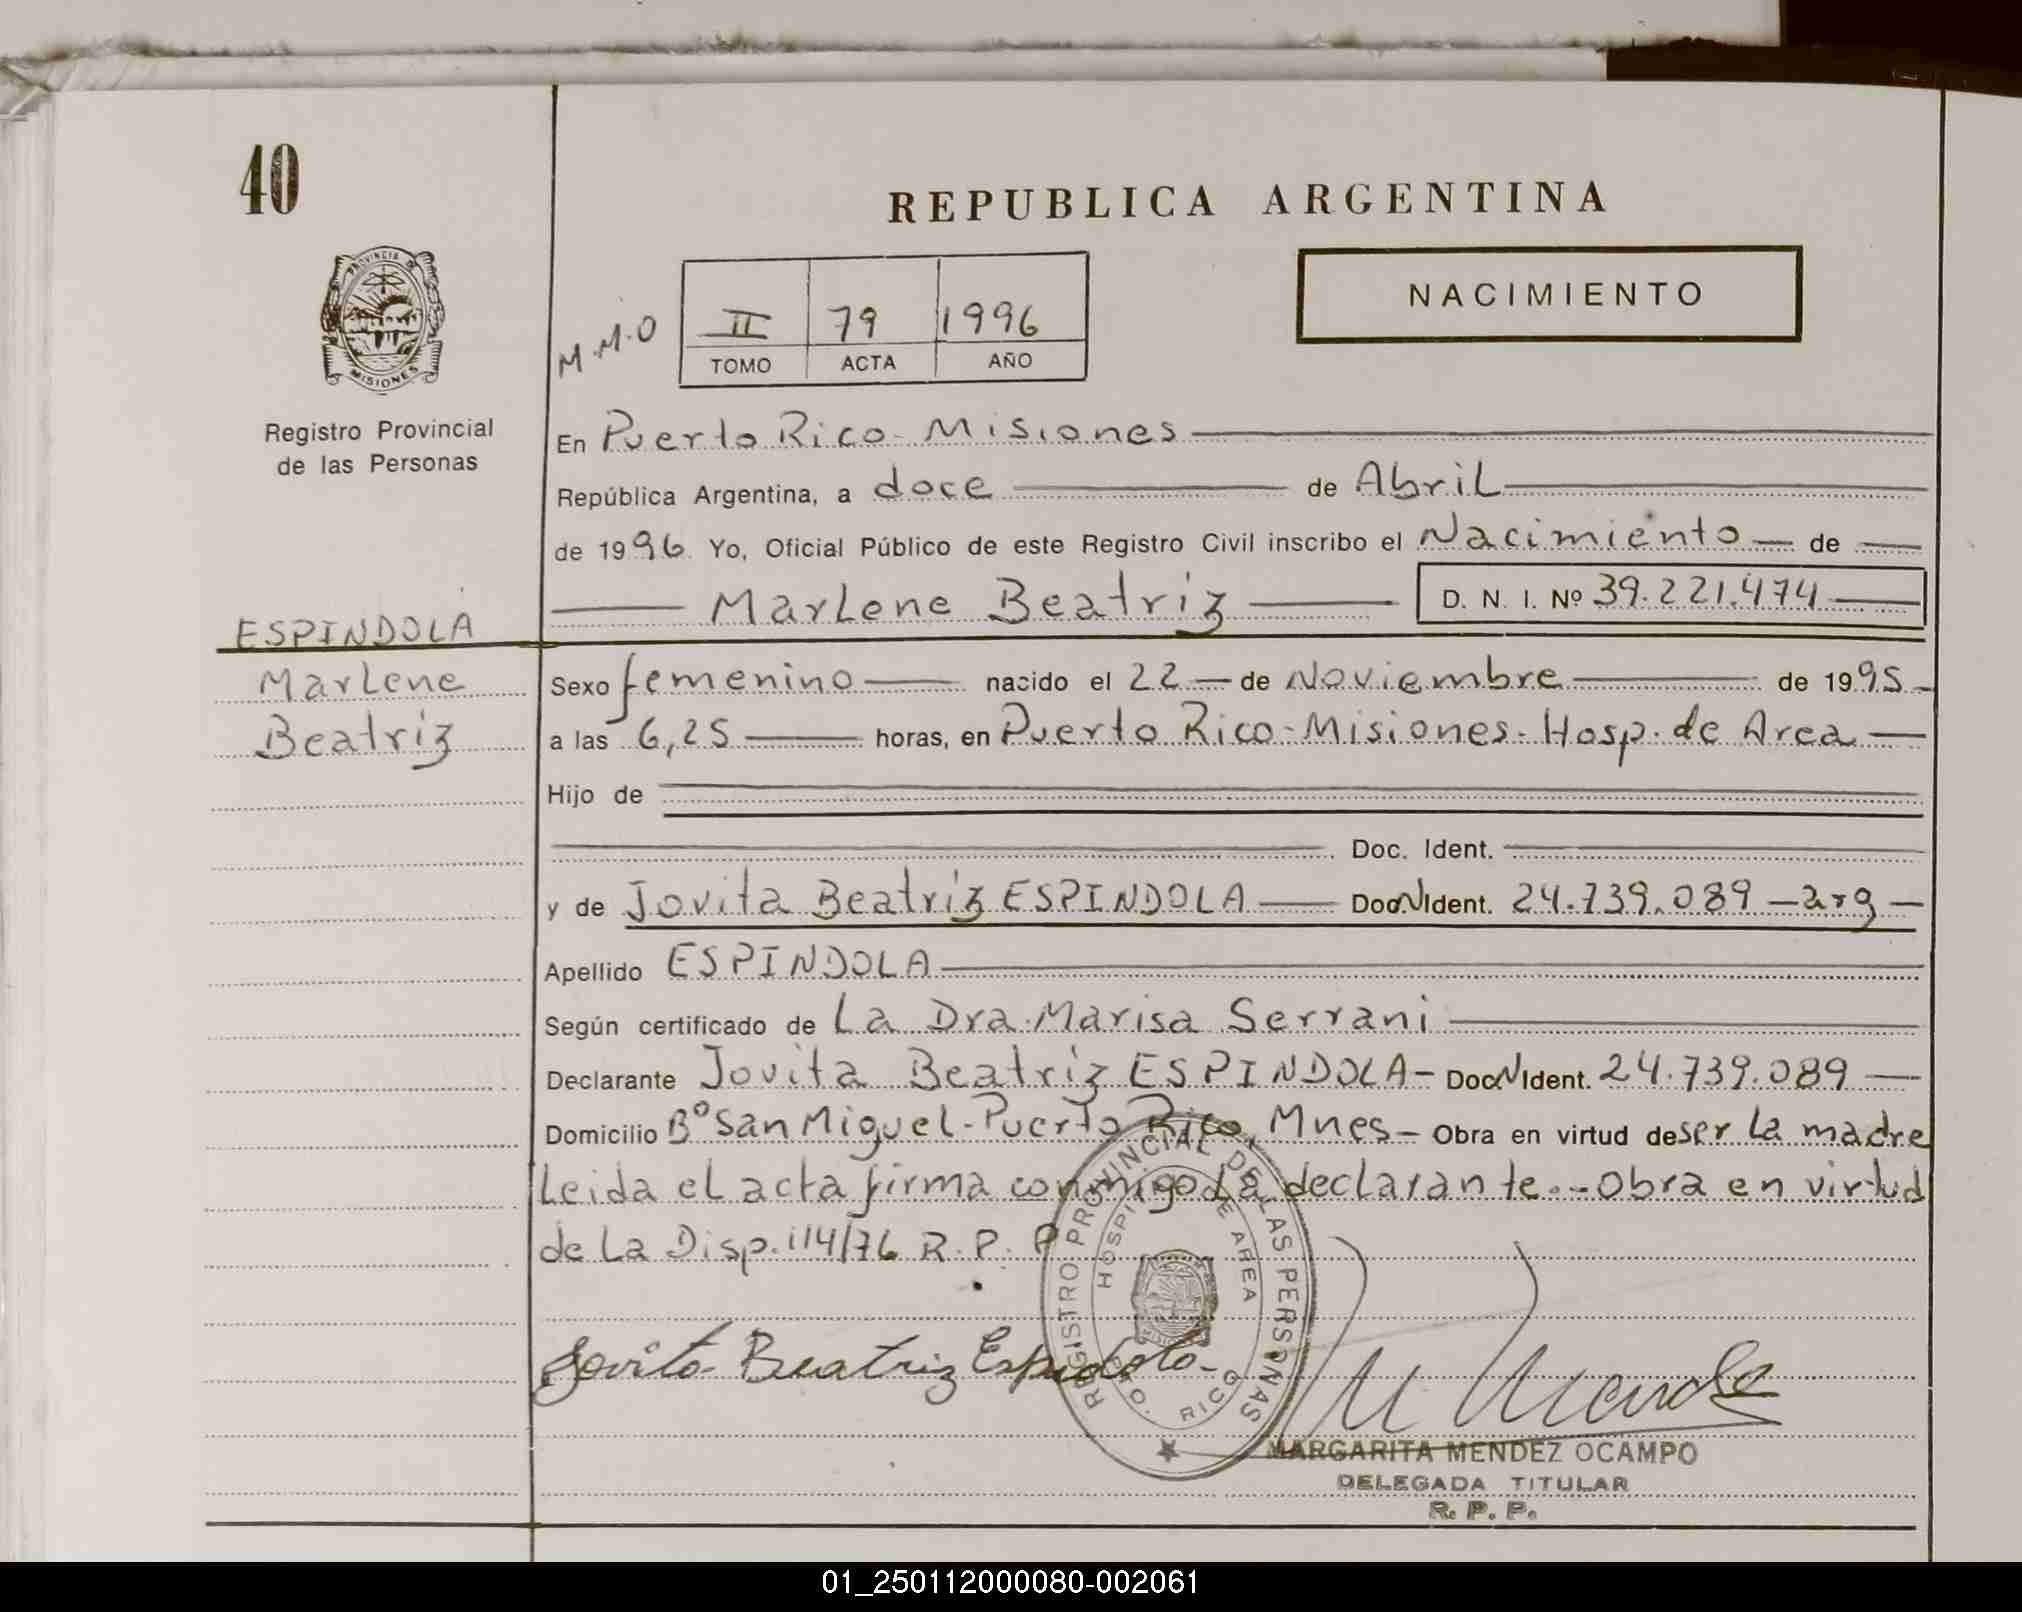 40
REPUBLICA ARGENTINA
NACIMIENTO
PROVINCIA DE
MISIONES
M.M.O
II 79 1996
TOMO ACTA AÑO
Registro Provincial
de las Personas
En Puerto Rico - Misiones
República Argentina, a doce de Abril
de 1996 Yo, Oficial Público de este Registro Civil inscribo el Nacimiento de
Marlene Beatriz D. N. I. Nº 39.221.474
ESPINDOLA
Marlene
Beatriz
Sexo femenino nacido el 22 de Noviembre de 1995
a las 6,25 horas, en Puerto Rico - Misiones - Hosp. de Area
Hijo de
Doc. Ident.
y de Jovita Beatriz ESPINDOLA Doc N Ident. 24.739.089 - arg
Apellido ESPINDOLA
Según certificado de La Dra. Marisa Serrani
Declarante Jovita Beatriz ESPINDOLA - Doc N Ident. 24.739.089
Domicilio Bº San Miguel - Puerto Rico, Mnes - Obra en virtud de ser la madre
Leida el acta firma conmigo la declarante. - Obra en virtud
de la Disp. 114/76 R. P. P
REGISTRO PROVINCIAL DE LAS PERSONAS
HOSPITAL DE AREA
PTO. RICO
Jovita Beatriz Espindola
M Mendez
MARGARITA MENDEZ OCAMPO
DELEGADA TITULAR
R. P. P.
01_250112000080-002061